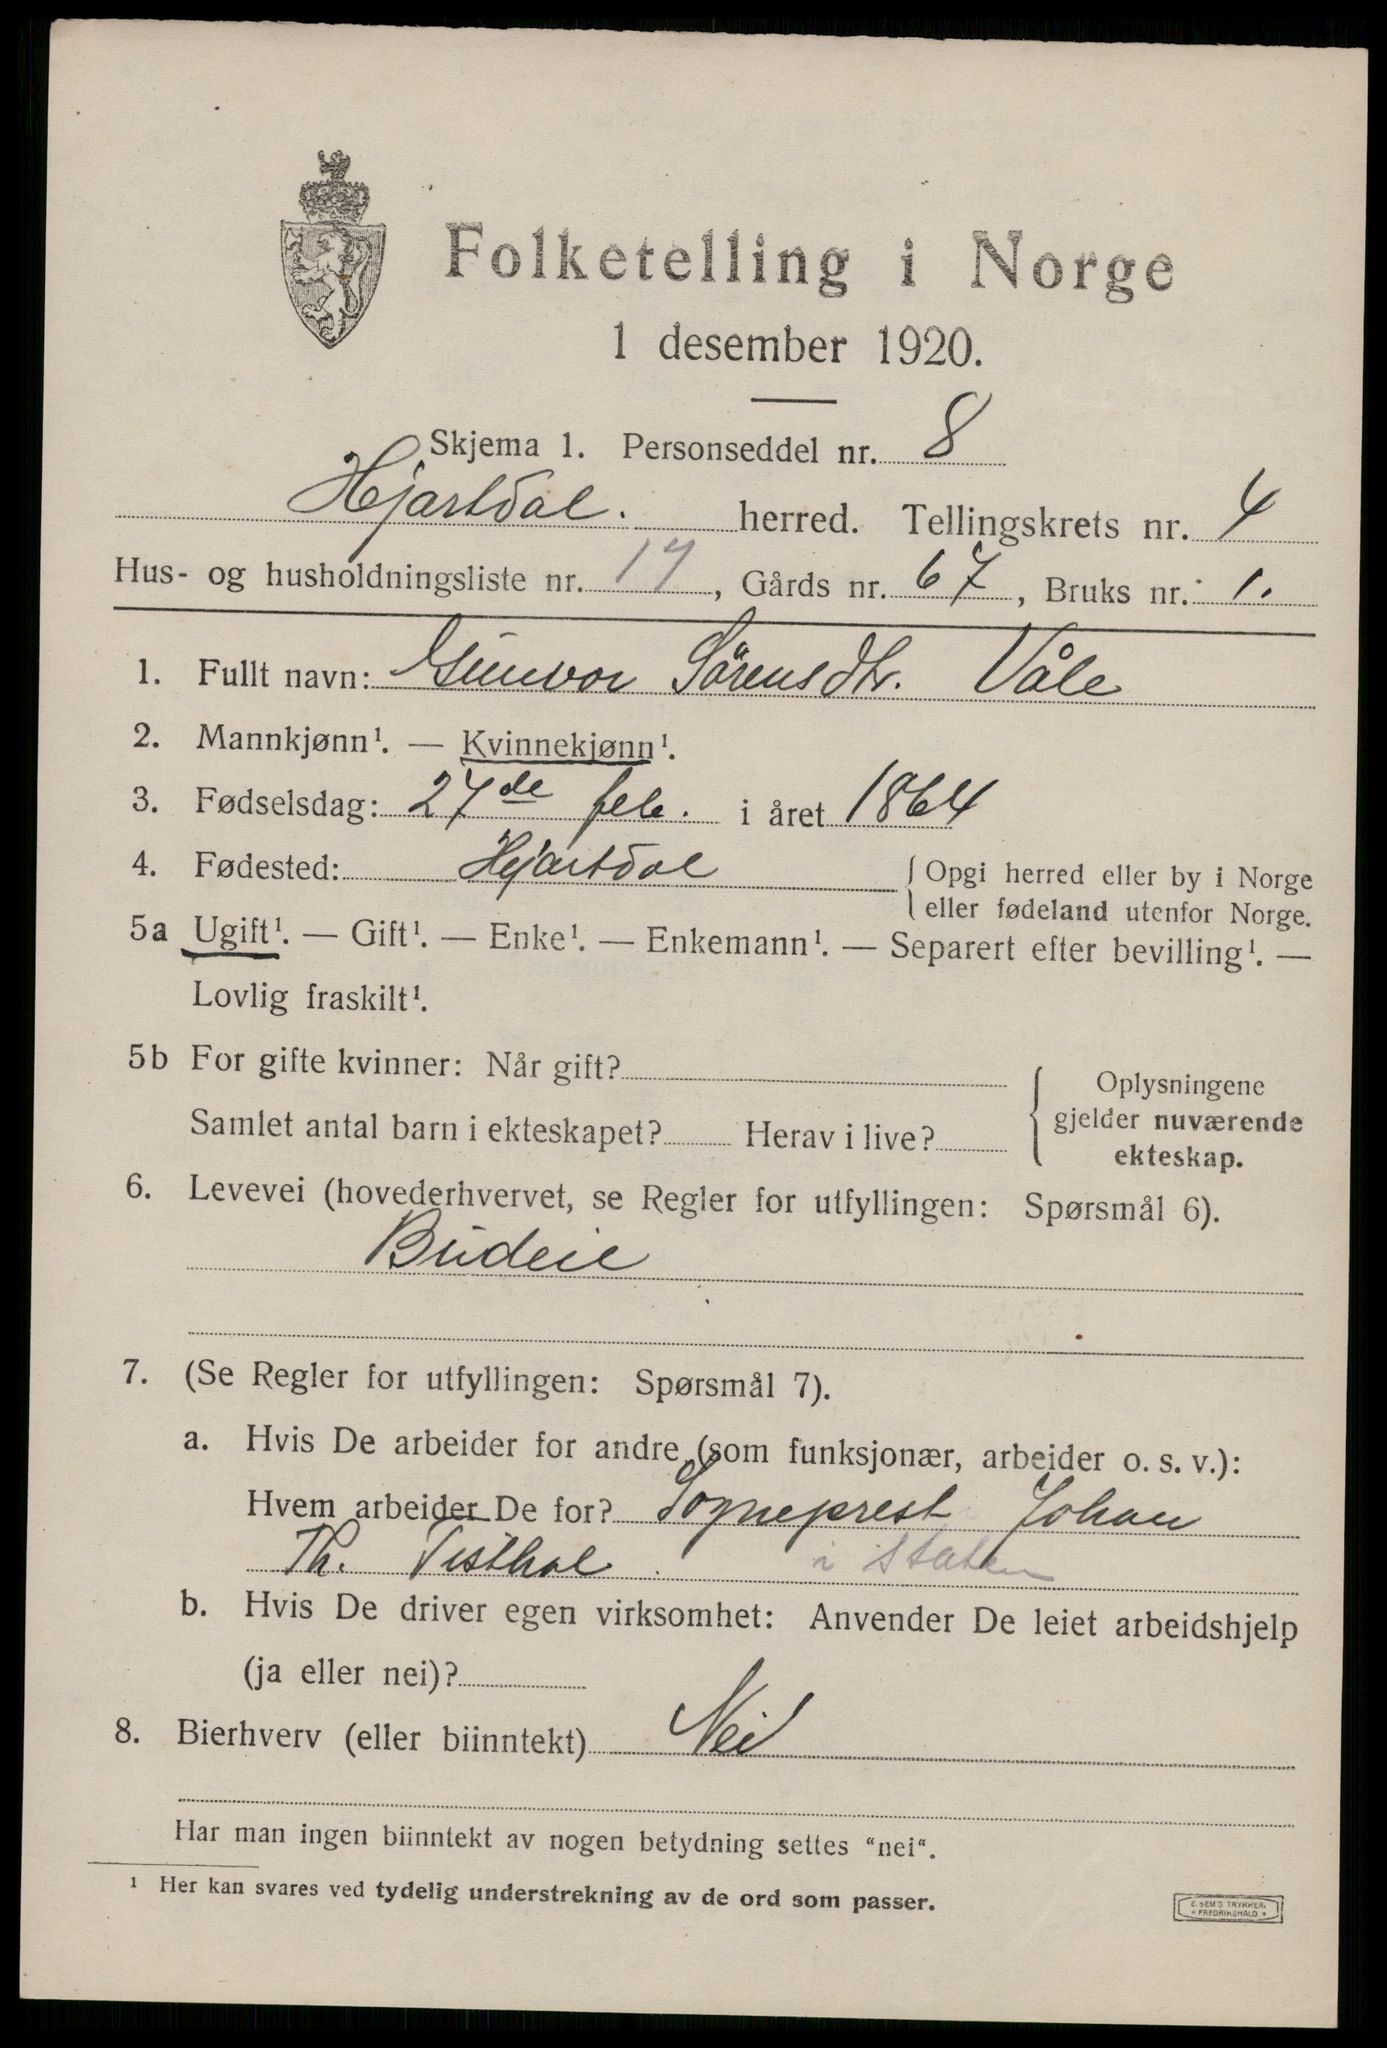 Folketelling i Norge
1 desember 1920.
Skjema 1. Personseddel nr. 8
Hjartdal. herred. Tellingskrets nr. 4
Hus- og husholdningsliste nr. 17, Gårds nr. 67, Bruks nr. 1.
1. Fullt navn: Gunvor Sörensdtr. Våle
2. Mannkjønn¹. — Kvinnekjønn¹.
3. Fødselsdag: 27de feb. i året 1864
4. Fødested: Hjartdal { Opgi herred eller by i Norge
eller fødeland utenfor Norge.
5a Ugift¹. — Gift¹. — Enke¹. — Enkemann¹. — Separert efter bevilling¹. —
Lovlig fraskilt¹.
5b For gifte kvinner: Når gift?
Samlet antal barn i ekteskapet? Herav i live?
{ Oplysningene
gjelder nuværende
ekteskap.
6. Levevei (hovederhvervet, se Regler for utfyllingen: Spørsmål 6).
Budeie
7. (Se Regler for utfyllingen: Spørsmål 7).
a. Hvis De arbeider for andre (som funksjonær, arbeider o. s. v.):
Hvem arbeider De for? Sogneprest Johan
Th. Tisthal i Staten
b. Hvis De driver egen virksomhet: Anvender De leiet arbeidshjelp
(ja eller nei)?
8. Bierhverv (eller biinntekt) Nei
Har man ingen biinntekt av nogen betydning settes "nei".
¹ Her kan svares ved tydelig understrekning av de ord som passer.
E. SEM'S TRYKKERI
* FREDRIKSHALD *